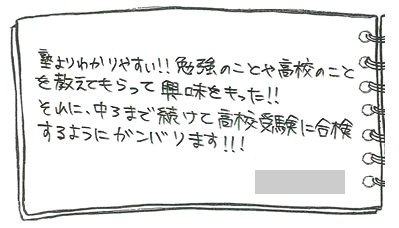 塾よりわかりやすい!! 勉強のことや高校のこと
を教えてもらって興味をもった!!
それに、中3まで続けて高校受験に合検
するようにガンバります!!!